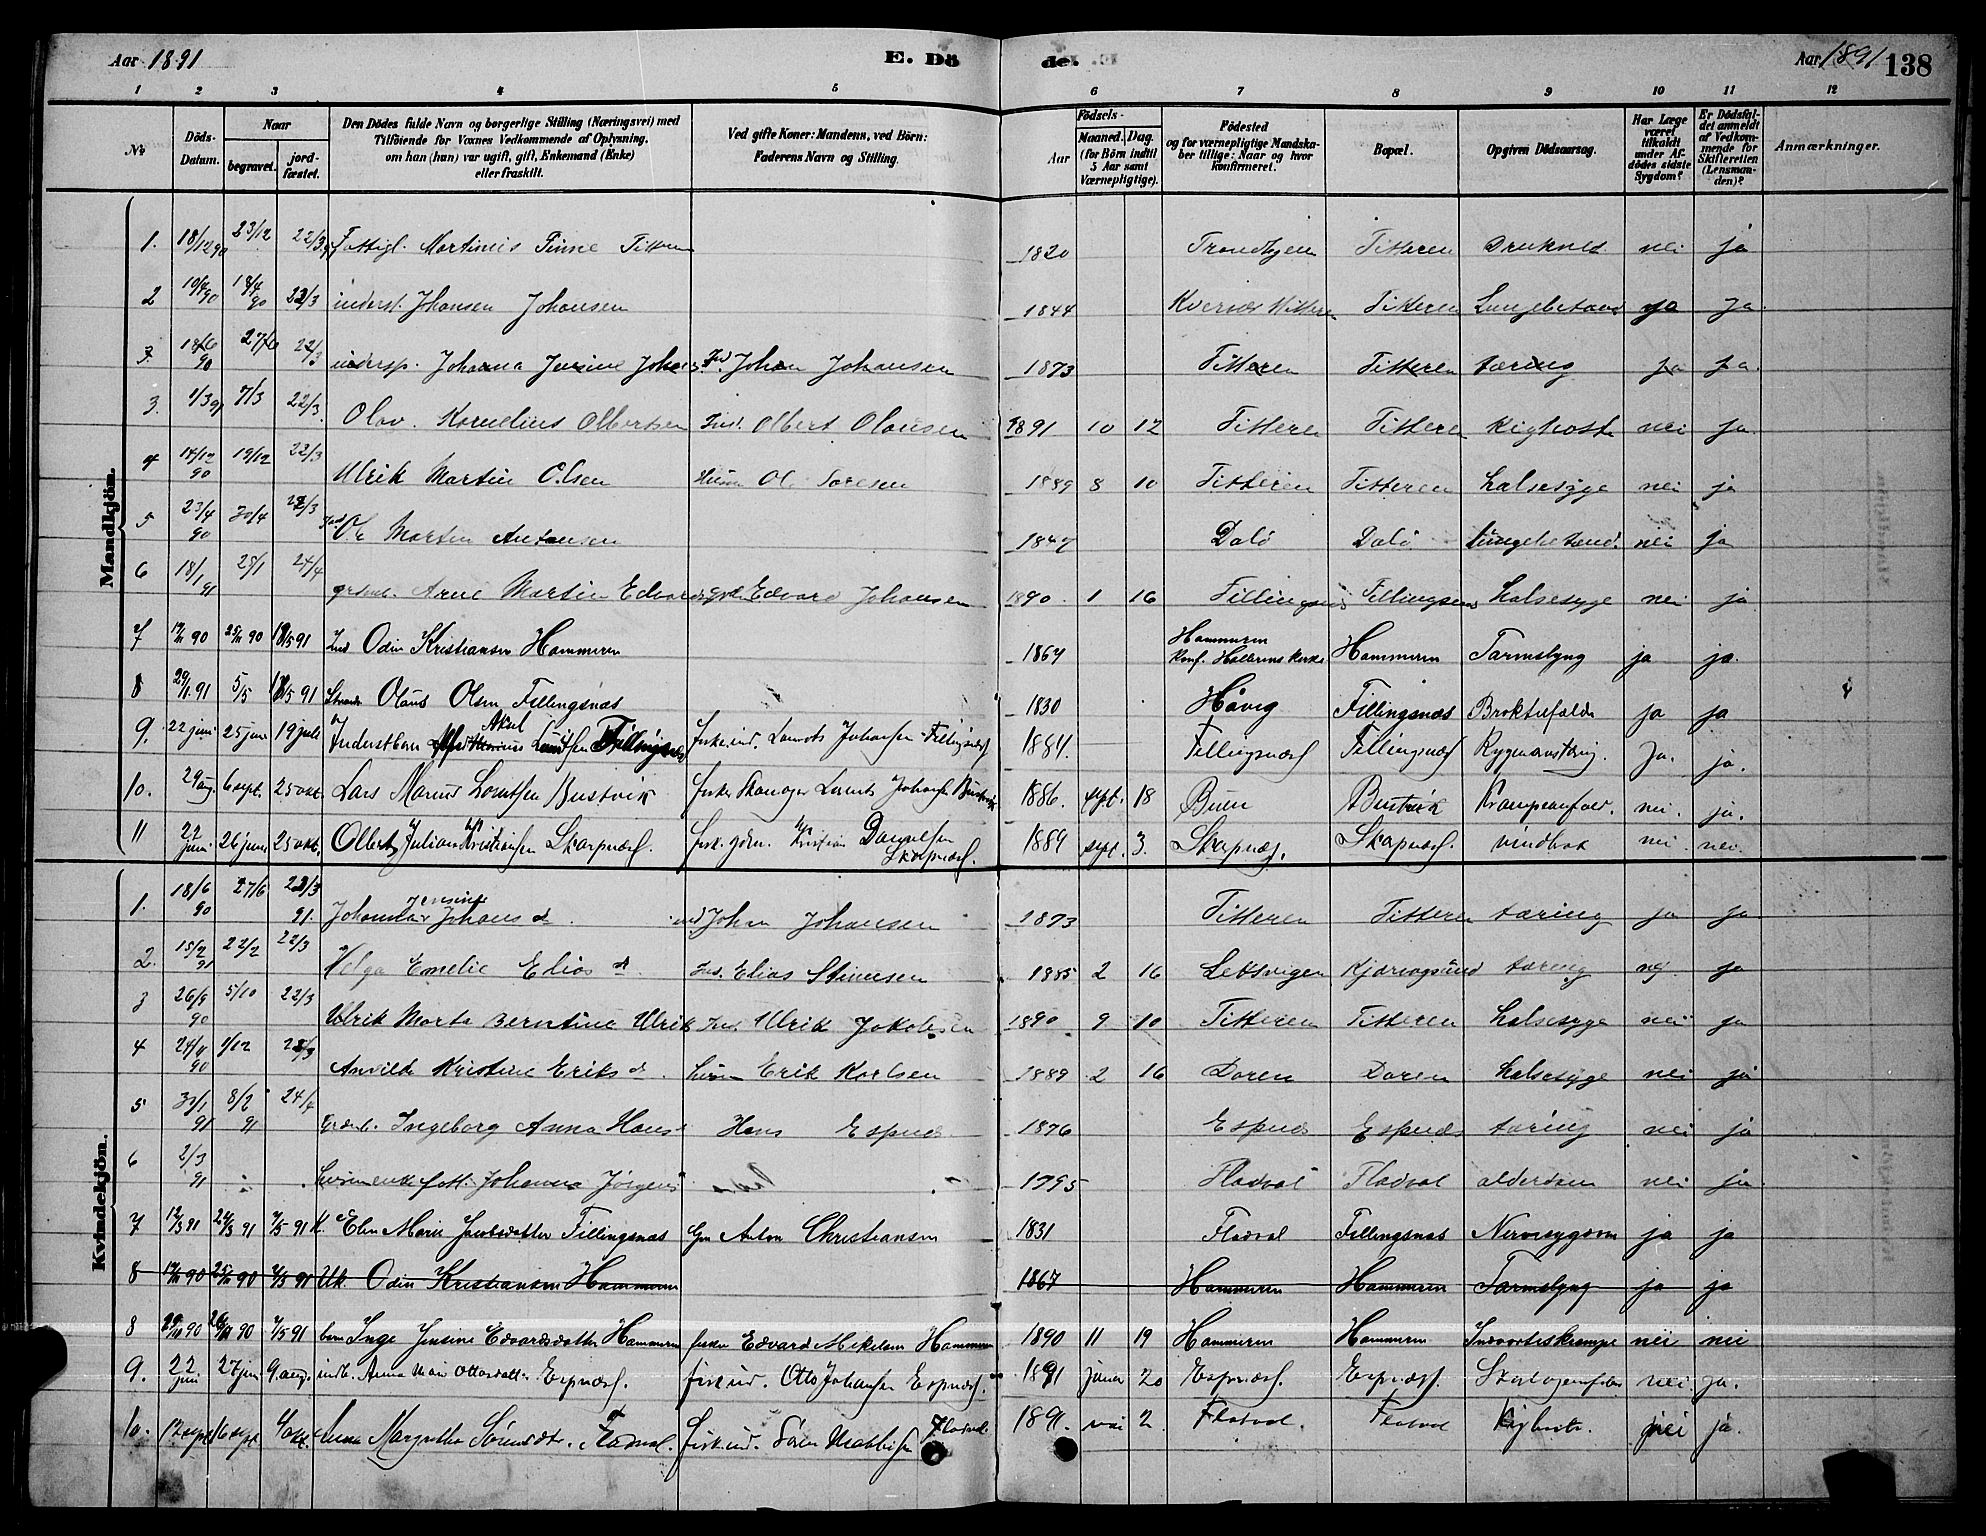 Aar 1891 E. Dö de. Aar 1891 138
1 2 3 4 5 6 7 8 9 10 11 12
No Döds-Datum. Naar begravet. jordfæstet. Den Dödes fulde Navn og borgerlige Stilling (Næringsvei) med Tilföiende for Voxnes Vedkommende af Oplysning, om han (hun) var ugift, gift, Enkemand (Enke) eller fraskilt. Ved gifte Koner: Mandens, ved Börn: Faderens Navn og Stilling. Födsels- Aar Maaned. Dag. (for Börn indtil 5 Aar samt Værnepligtige). Födested og for værnepligtige Mandskaber tillige: Naar og hvor konfirmeret. Bopæl. Opgiven Dödsaarsag. Har Læge været tilkaldt under Afdödes sidste Sygdom? Er Dödsfaldet anmeldt af Vedkommende for Skifteretten (Lensmanden)? Anmærkninger.
Mandkjön.
1. 18/12 90 23/12 22/3 91 Fattigl. Martinus Titteren 1820 Trondhjem Titteren Druknet nei ja
2 10/4 90 18/4 90 22/3 inderst. Johansen Johansen 1844 Kvernæs Titteren Lungebetænd ja ja
3. 18/6 90 27/6 22/3 indersp. Johanna Jensine Johans. Ind. Johan Johansen 1873 Titteren Titteren tæring ja ja.
3. 1/3 91 7/3 22/3. Olav. Kornelius Olbertsen Ind. Olbert Olausen 1891 10 12 Titteren Titteren Kighoste nei ja
4 14/12 90 19/12 22/3 Ulrik Martin Olsen Husm Ol 1889 8 10 Titteren Titteren halsesyge nei ja
5 23/4 90 30/4 22/3 Ind Ole Martin Antonsen 1847 Dalö Dalö lungebetænd. nei ja
6 18/1 91 25/1 24/4 grdml. Arne Martin Edvards Grdm Edvard Johansen 1890 1 16 Fillingsnæs Fillingsnæs halsesyge nei ja
7 17/11 90 25/11 90 18/5 91 Ind Odin Kristiansen Hammeren 1867 Hammeren Konf. Hallarens Kirke Hammeren Tarmslyng ja ja.
8 29/4 91 5/5 18/5 91 Olaus Olsen Fillingsnæs 1830 Håvig Fillingsnæs Broktilfælde ja ja
9. 22 juni 25 juni 19 juli Inderstbarn Aksel Lauritsen Fillingsnæs fisker ind. Laurits Johansen Fillingsnæs 1884. Fillingsnæs Fillingsnæs Rygmarvstæring. Ja. ja.
10. 29 aug. 6 sept. 25 okt. Lars Marius Lauritsen Bustvik fisker Laurits Johansen Bustvik 1886. sept. 18 Buen Bustvik Krampeanfald. nei. ja.
11 22 juni 26 juni 25 okt. Olbert Julian Kristiansen Skarpnæs. fisk. gdm. Kristian Danielsen Skarpnæs. 1889 sept. 3. Skarpnæs. Skarpnæs. vindbrok nei. nei.
Kvindekjön.
1. 18/6 90 27/6 22/3 91. Johanna Jensine Johans d. ind Johan Johansen 1873 Titteren Titteren tæring ja ja
2. 15/2 91 22/2 22/3 Helga Emelie Elias d Ind. Elias Stinesen 1885 2 16 Letsvigen Kjørvogsund tæring nej ja
3 26/9 90 5/10 22/3 Ulrik Marta Berntine Ulrik Ind. Ulrik Jakobsen 1890 9 10 Titteren Titteren halsesyge nei ja
4 24/11 90 1/12 22/3 Anvilde Kristine Eriks d. husm Erik Karlsen 1889 2 16 Doren Doren halsesyge nei ja
5 30/1 91 8/2 91 24/4 Grdmb. Ingeborg Anna Hans. Hans Espnæs 1876 Espnæs Espnæs tæring nei ja
6 2/3 91 husmenke fatt. Johanna Jørgens 1795 Fladval Fladval alderdom nei ja
7 17/3 91 24/3 91 7/5 91 K. Elen Marie Jacobsdatter Fillingsnæs Gm Anton Christiansen 1831 Fladval Fillingsnæs Nervesygdom ja ja
8 17/11 90 25/11 90 7/5 91 Uk Odin Kristiansen Hammeren 1867 Hammeren Hammeren Tarmslyng ja ja
8 90 26/11 90 7/5 91 barn Inge Jensine Edvardsdatter Hammeren fisker Edvard Mikelsen Hammeren 1890 11 19 Hammeren Hammeren Indvorteskrampe nei nei
9. 22 juni 27 juni 9. aug. indb. Anna Marie Ottosdatter Espnæs. fisk ind. Otto Johansen Espnæs. 1891 januar 20 Espnæs. Espnæs. nei. ja.
10. 12 sept. 16 sept. 4 okt. Anna Margretha Sörensdtr. Fladval. fisk ind. Sören Mathisen Fladval. 1891. mai 2 Fladval. Fladval Kighoste. nei ja.